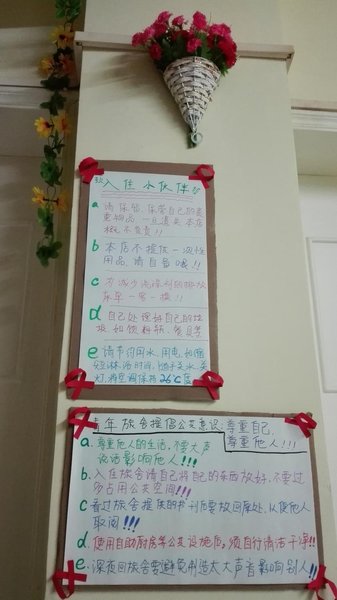 欢入住小伙伴们
a 请保管、保管自己的贵
重物品,一旦遗失本店
概不负责!!
b 本店不提供一次性
用品、请自备哦!!
c
东单一客一换!!
d 自己处理好自己的垃
圾,如饮料瓶、餐具等
e 请节约用水,用电,如缩
短淋浴时间,随手关水、关
灯,将空调保持26℃度
青年旅舍提倡公共意识:尊重自己,
尊重他人!!!
a. 尊重他人的生活,不要大声
说话影响他人!!!
b. 入住旅舍请自己将自己的东西放好,不要过
多占用公共空间!!!
c 看过旅舍提供的书刊后要放回原处,以便他人
取阅!!!
d. 使用自助厨房等公共设施后,须自行清洁干净!!
e: 深夜回旅舍要避免制造太大声音影响别人!!